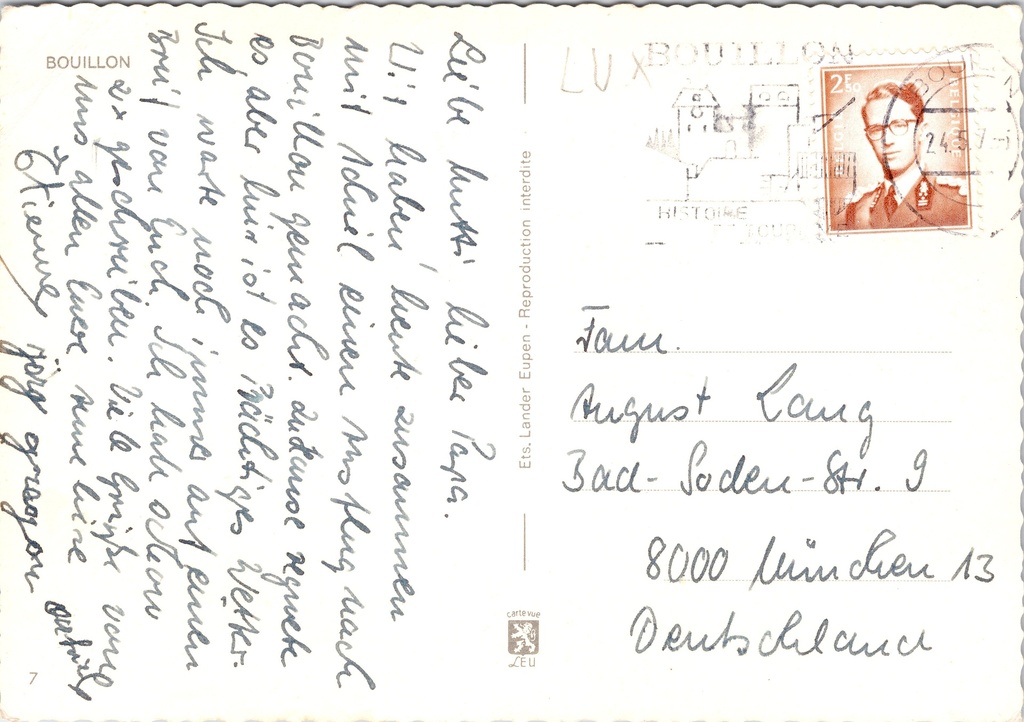 BOUILLON
Liebe Mutti lieber Papa.
Wir haben heute zusammen
mit schuel einen Ausflug nach
Bouillon gemacht. zuhause regnete
es aber hir ist es Prächtiges Wetter.
Ich warte noch immer auf einen
Brif von Euch. Ich hab schon
2x geschriben. Vile Grüße von
uns allen Euere Anneliese
Étienne Jörg gregor
7
Ets. Lander Eupen - Reproduction interdite
cartevue
LEU
LUX
BOUILLON
HISTOIRE
TOUR
2F50
BELGIE
24.5.7
Fam.
August Lang
Bad-Soden-Str. 9
8000 München 13
Deutschland